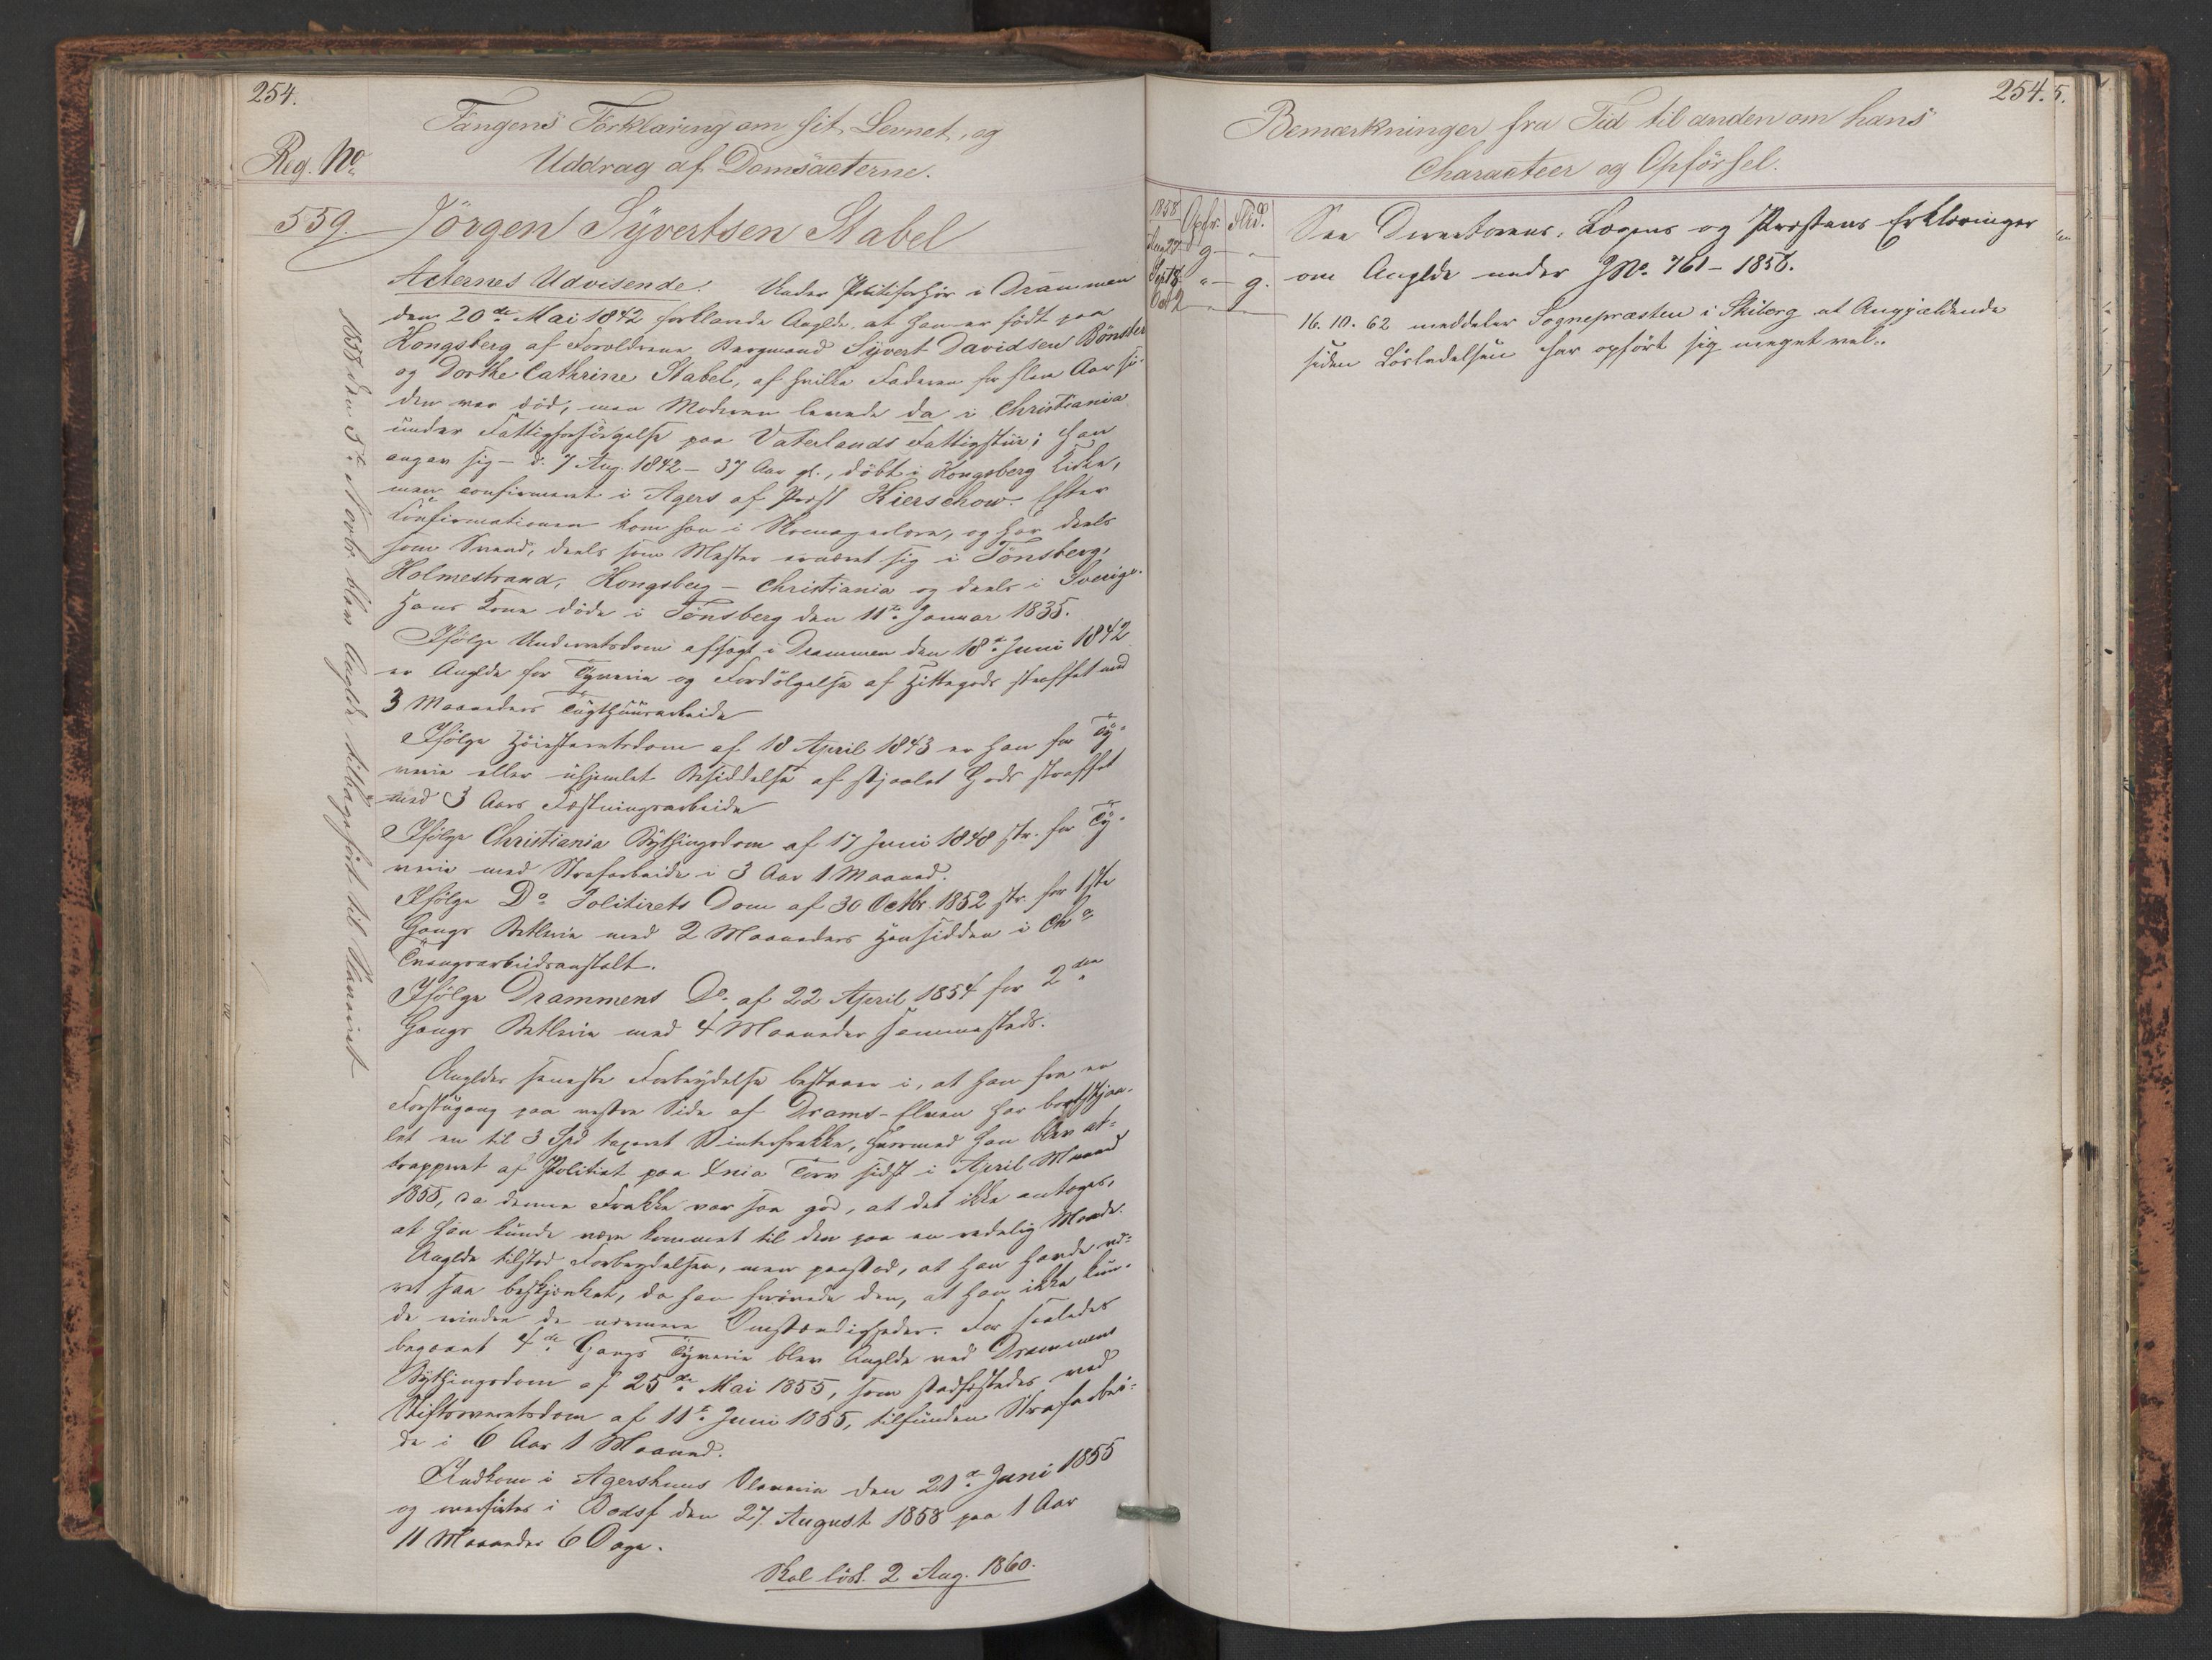 254.
Reg. No
Fangens Forklaring om sit Levnet, og
Uddrag af Domsacterne.
559. Jörgen Syvertsen Stabel
Acternes Udvisende: Under Politiforhör i Drammen
den 20de Mai 1842 forklarede Anglde, at han er födt paa
Kongsberg af Forældrene Bergmand Syvert Davidsen Bönster
og Dorthe Cathrine Stabel, af hvilke Faderen for flere Aar si-
den var död, men Moderen levede da i Christiania
under Fattigforsörgelse paa Vaterlands Fattighuus; han
angav sig - d. 7 Aug. 1842 - 37 Aar gl., döbt i Kongsberg Kirke,
men confirmeret i Agers af Provst Kierschow. Efter
Confirmationen kom han i Skomagerlære, og har deels
som Svend, deels som Mester ernæret sig i Tönsberg,
Holmestrand, Kongsberg - Christiania og deels i Sverige.
Hans Kone döde i Tönsberg den 11te Januar 1835.
Ifölge Underretsdom afsagt i Drammen den 18de Juni 1842
er Anglde for Tyverie og Fordölgelse af Hittegods straffet med
3 Maaneders Tugthuusarbeide
Ifölge Höiesteretsdom af 18 April 1843 er han for Ty-
verie eller uhjemlet Besiddelse af stjaalet Gods straffet
med 3 Aars Fæstningsarbeide
Ifölge Christiania Bythingsdom af 17 Juni 1848 str. for Ty-
verie med Strafarbeide i 3 Aar 1 Maaned.
Ifölge Do Politirets Dom af 30 Octbr. 1852 str. for 1ste
Gangs Betlerie med 2 Maaneders Hensidden i Cha
Tvangsarbeidsanstalt.
Ifölge Drammens Do. af 22 April 1854 for 2den
Gangs Betlerie med 4 Maaneder sammesteds.
Angldes seneste Forbrydelse bestaaer i, at han fra en
Forstugang paa vestre Side af Drams-Elven har bortstjaa-
let en til 3 Spd taxeret Vinterfrakke, hvormed han blev at-
trapperet af Politiet paa Xnia Torv sidst i April Maaned
1855, da denne Frakke var saa god, at det ikke antoges,
at han kunde være kommet til den paa en redelig Maade.
Anglde tilstod Forbrydelsen, men paastod, at han havde væ-
ret saa beskjenket, da han hævede den, at han ikke kun-
de erindre de nærmere Omstændigheder. For saaledes
begaaet 4de Gangs Tyverie blev Anglde ved Drammens
Bythingsdom af 25de Mai 1855, som stadfæstedes ved
Stiftsoverretsdom af 11te Juni 1855, tilfunden Strafarbei-
de i 6 Aar 1 Maaned.
Indkom i Agershuus Slaverie den 21de Juni 1855
og overførtes i Bodsf den 27. August 1858 paa 1 Aar
11 Maaneder 6 Dage.
Skal löst. 2 Aug. 1860.
1858 den 3de Novbr. blev Anglde tilbageført til Slaveriet
254.
5.
Bemærkninger fra Tid til anden om hans
Characteer og Opförsel.
1858 Opfr. Flid.
Aug 27 g - "
Sept 18 " - g.
Oct 2
See Directörens, Lægens og Præstens Erklæringer
om Anglde under JNo. 761 - 1858.
16.10.62 meddeler Sognepræsten i Skiberg at Angjældende
siden Lösladelsen har opfört sig meget vel.